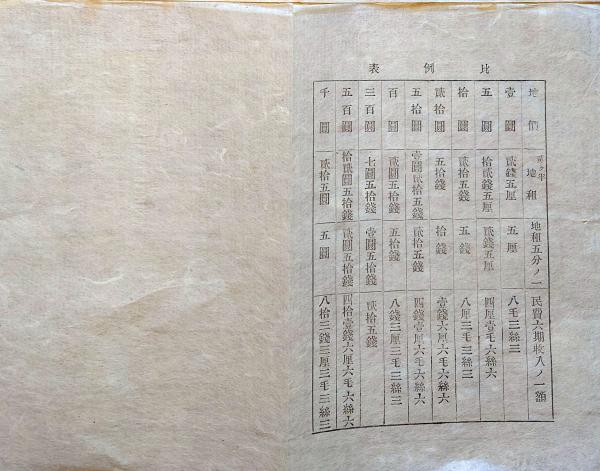 比例表
地價 地租 地租五分ノ一 民費六期收八ノ一額
壹圓 貳錢五厘 五厘 八毛三絲三
五圓 拾貳錢五厘 貳錢五厘 四厘壹毛六絲六
拾圓 貳拾五錢 五錢 八厘三毛三絲三
貳拾圓 五拾錢 拾錢 壹錢六厘六毛六絲六
五拾圓 壹圓貳拾五錢 貳拾五錢 四錢壹厘六毛六絲六
百圓 貳圓五拾錢 五拾錢 八錢三厘三毛三絲三
三百圓 七圓五拾錢 壹圓五拾錢 貳拾五錢
五百圓 拾貳圓五拾錢 貳圓五拾錢 四拾壹錢六厘六毛六絲六
千圓 貳拾五圓 五圓 八拾三錢三厘三毛三絲三